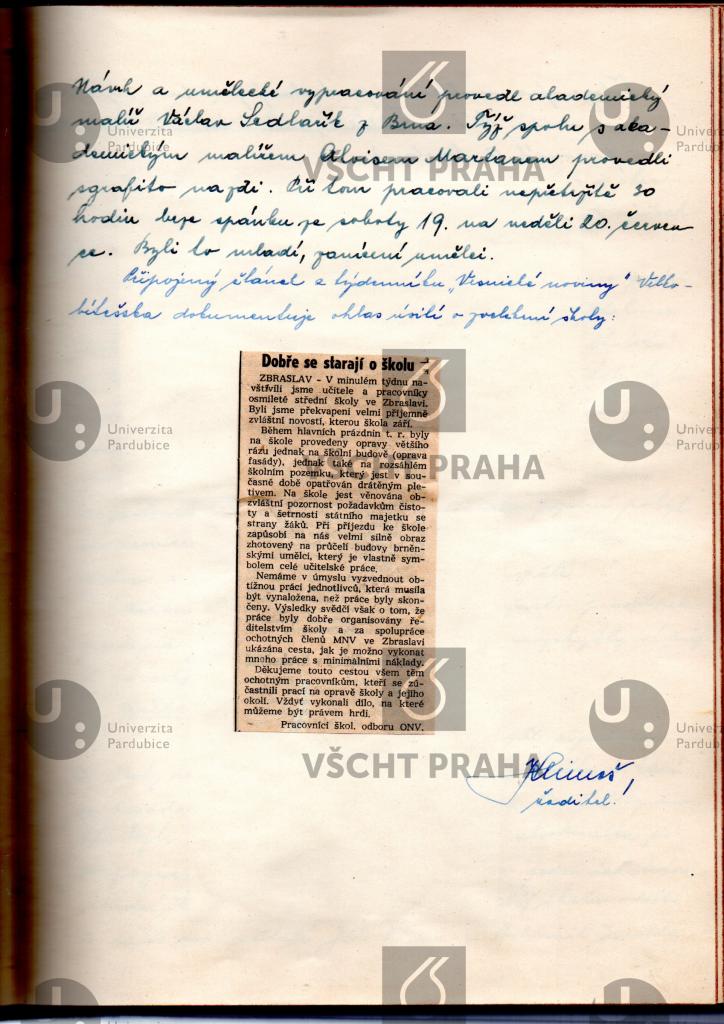 Návrh a umělecké vypracování provedl akademický
malíř Václav Sedlařík z Brna. Týž spolu s aka-
demickým malířem Aloisem Martanem provedli
sgrafito na zdi. Při tom pracovali nepřetržitě 30
hodin beze spánku ze soboty 19. na neděli 20. červen-
ce. Byli to mladí, zanícení umělci.
Připojený článek z týdenníku „Vesnické noviny“ Velko-
bítešska dokumentuje ohlas úsilí o zvelebení školy:
Dobře se starají o školu
ZBRASLAV - V minulém týdnu na-
vštívili jsme učitele a pracovníky
osmileté střední školy ve Zbraslavi.
Byli jsme překvapeni velmi příjemně
zvláštní novostí, kterou škola září.
Během hlavních prázdnin t. r. byly
na škole provedeny opravy většího
rázu jednak na školní budově (oprava
fasády), jednak také na rozsáhlém
školním pozemku, který jest v sou-
časné době opatřován drátěným ple-
tivem. Na škole jest věnována ob-
zvláštní pozornost požadavkům čisto-
ty a šetrnosti státního majetku se
strany žáků. Při příjezdu ke škole
zapůsobí na nás velmi silně obraz
zhotovený na průčelí budovy brněn-
skými umělci, který je vlastně sym-
bolem celé učitelské práce.
Nemáme v úmyslu vyzvednout ob-
tížnou práci jednotlivců, která musila
být vynaložena, než práce byly skon-
čeny. Výsledky svědčí však o tom, že
práce byly dobře organisovány ře-
ditelstvím školy a za spolupráce
ochotných členů MNV ve Zbraslavi
ukázána cesta, jak je možno vykonat
mnoho práce s minimálními náklady.
Děkujeme touto cestou všem těm
ochotným pracovníkům, kteří se zú-
častnili prací na opravě školy a jejího
okolí. Vždyť vykonali dílo, na které
můžeme být právem hrdi.
Pracovníci škol. odboru ONV.
ředitel.
Univerzita
Pardubice
VŠCHT PRAHA
Univerzita
Pardubice
Univerzita
Pardubice
VŠCHT PRAHA
Univerzita
Pardubice
Univerzita
Pardubice
VŠCHT PRAHA
Univerzita
Pardubice
Univerzita
Pardubice
VŠCHT PRAHA
Univerzita
Pardubice